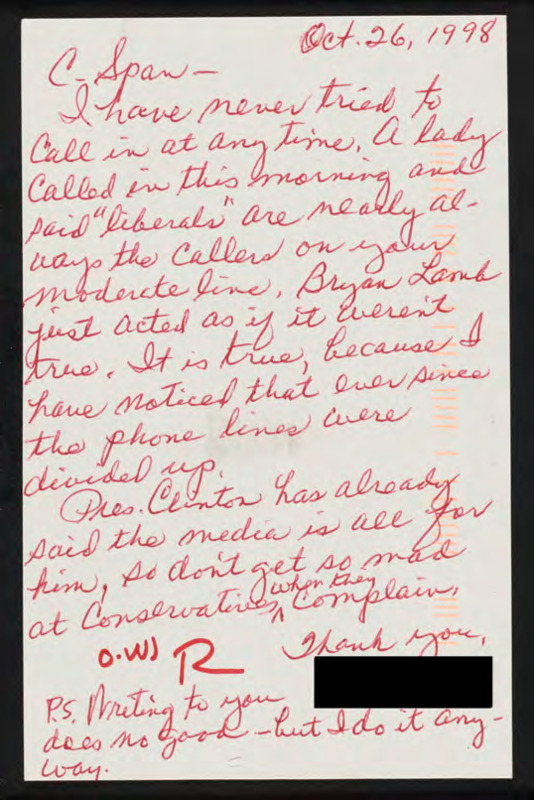 Oct. 26, 1998
C-Span -
I have never tried to
Call in at any time. A lady
Called in this morning and
said "liberals" are nearly al-
ways the callers on your
moderate line. Bryan Lamb
just acted as if it weren't
true. It is true, because I
have noticed that ever since
the phone lines were
divided up.
Pres. Clinton has already
said the media is all for
him, so don't get so mad
at Conservatives when they complain.
Thank you,
R
P.S. Writing to you
does no good - but I do it any-
way.